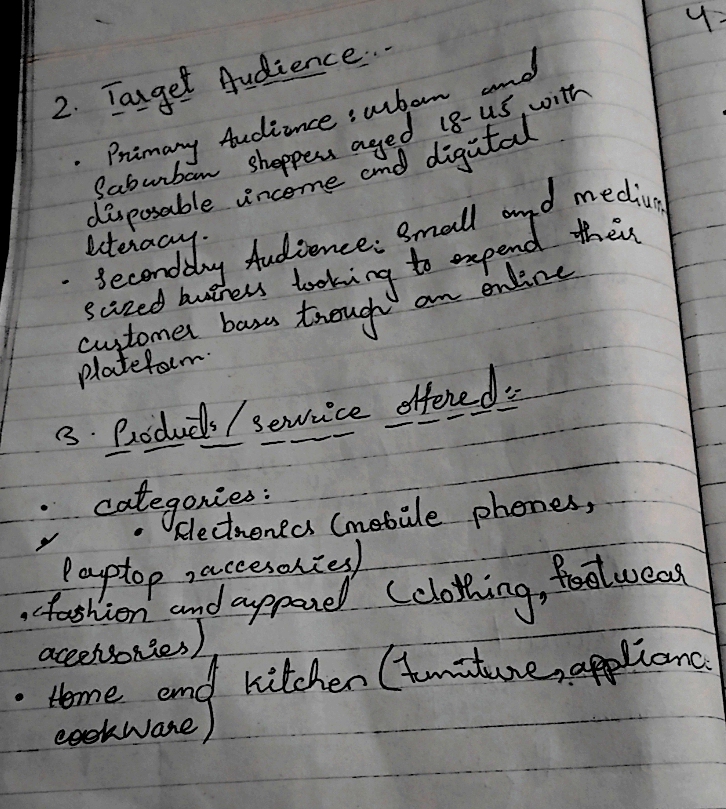 4.
2. Target Audience:-
• Primary Audience: urban and
Saburban shoppers aged 18-45, with
disposable income and digital
literacy.
• Secondary Audience: Small and medium
scized business looking to expend their
customer bases trough an online
plateform.
3. Products/service offered:-
• categories:
• Electronics (mobile phones,
laptop, accesories)
• fashion and apparel (clothing, footwear
accersories)
• Home and kitchen (furniture, applianc
cookware)